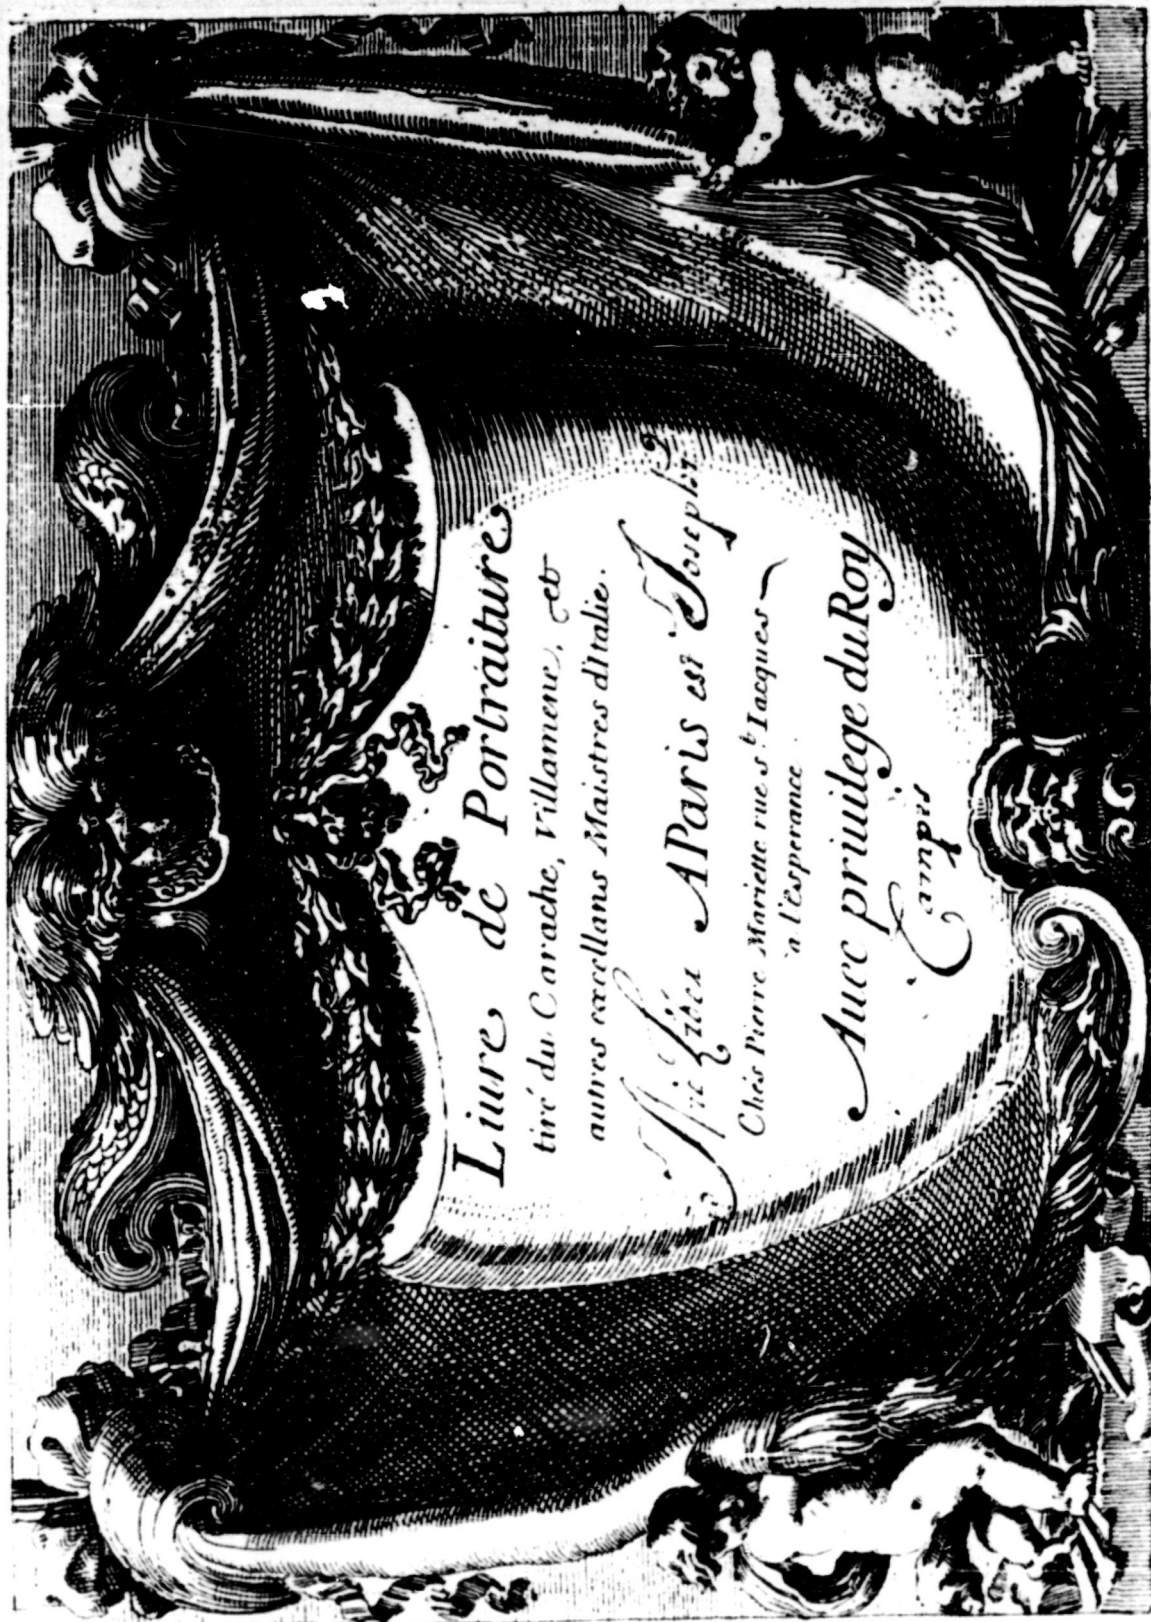 Liure de Portraitures
tiré du Carache, Villamene, et
autres excellans Maistres d'Italie.
Hic Liber est Josephi
A Paris
Chés Pierre Mariette rue St. Iacques
a l'esperance
Auec priuilege du Roy
Campis